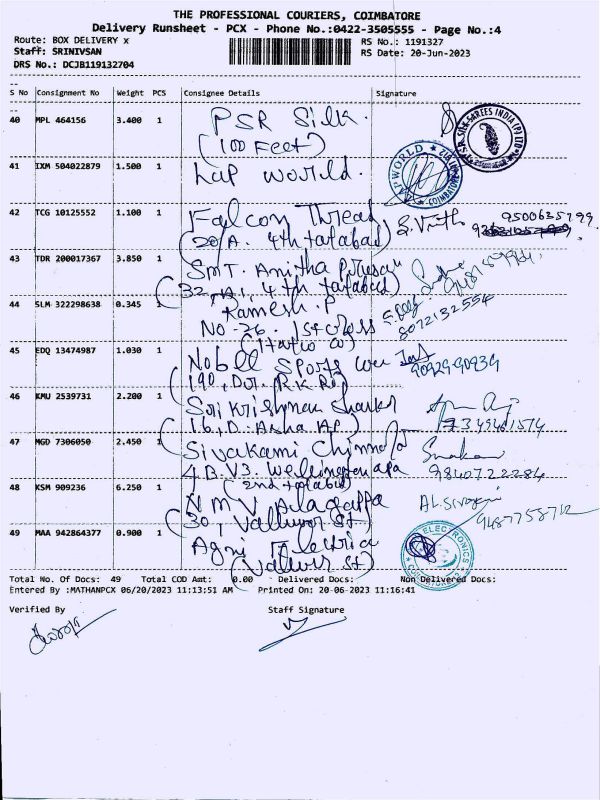 THE PROFESSIONAL COURIERS, COIMBATORE
Delivery Runsheet - PCX - Phone No.:0422-3505555 - Page No.:4
Route: BOX DELIVERY x
RS No.: 1191327
Staff: SRINIVSAN
RS Date: 20-Jun-2023
DRS No.: DCJB119132704
S No Consignment No Weight PCS Consignee Details Signature
40 MPL 464156 3.400 1 PSR Silk.
(100 Feet)
41 IXM 504022879 1.500 1 Lap World.
42 TCG 10125552 1.100 1 Falcon Thread
(20/A. 4th tatabad) 9500635799
43 TDR 200017367 3.850 1 SMT. Anitha
(32, A1, 4th tatabad)
44 SLM 322298638 0.345 1 Ramesh. P
No-26. 1st cross 8072132554
45 EDQ 13474987 1.030 1 Nobell Sports
(190, D.r. R.K Rd) 90929-90939
46 KMU 2539731 2.200 1 Sri Krishnan
(16, D. Asha AP) 7339461574
47 MGD 7306050 2.450 1 Sivakami
4.B.V3. Wellington apa 9840722284
(2nd tatabad)
48 KSM 909236 6.250 1 N M V Alagappa
(30, Valluvar St.)
49 MAA 942864377 0.900 1 Agni Electria
(Valluvar St)
ELECTRONICS
Total No. Of Docs: 49 Total COD Amt: 0.00 Delivered Docs: Non Delivered Docs:
Entered By :MATHANPCX 06/20/2023 11:13:51 AM Printed On: 20-06-2023 11:16:41
Verified By Staff Signature